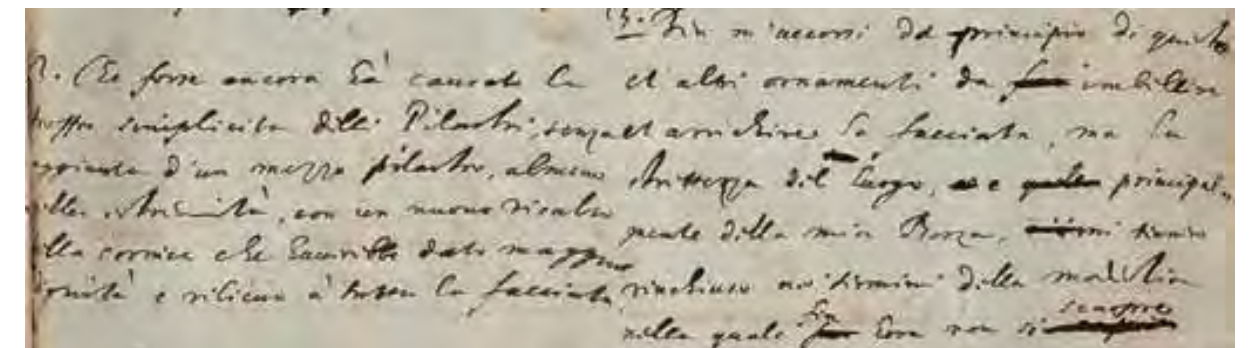 2. Che forse ancora hà causato la
troppa simplicita delli Pilastri, senza
aggiunta d'un mezzo pilastro, almeno
alle estremità, con un nuovo risalto
della cornice che haverebbe dato maggior
dignità e rilievo à tutta la facciata
3. Ben m'accorsi dal principio di questi
et altri ornamenti da imbellire
et arrichire la facciata, ma la
strettezza del luogo, e principal
mente della mia Borsa, mi
rinchiuse ne termini della modestia
nella quale fin hora non si scuopre